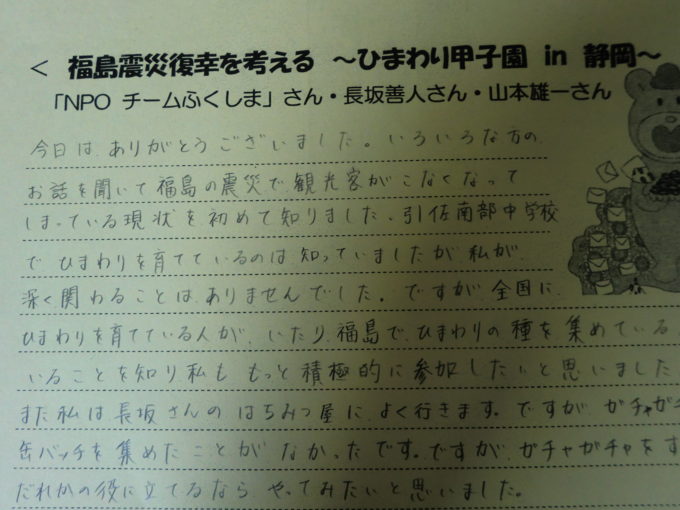 < 福島震災復幸を考える ～ひまわり甲子園 in 静岡～
「NPO チームふくしま」さん・長坂善人さん・山本雄一さん
今日は、ありがとうございました。いろいろな方の
お話を聞いて福島の震災で観光客がこなくなって
しまっている現状を初めて知りました、引佐南部中学校
で ひまわりを育てているのは知っていましたが私が
深く関わることはありませんでした。ですが全国に
ひまわりを育てている人が、いたり、福島で、ひまわりの種を集めている
いることを知り私も もっと積極的に参加したいと思いました
また私は長坂さんの はちみつ屋に、よく行きます。ですが、ガチャガチ
缶バッチを集めたことが なかったです。ですが、ガチャガチャをす
だれかの役に立てるなら やってみたいと思いました。